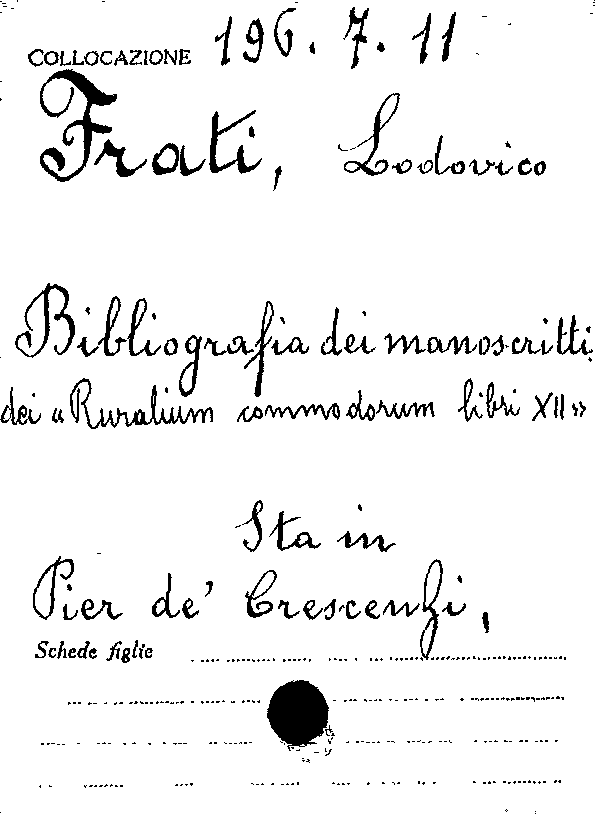 COLLOCAZIONE 196.7.11
Frati, Lodovico
Bibliografia dei manoscritti
dei «Ruralium commodorum libri XII»
Sta in
Pier de' Crescenzi,
Schede figlie